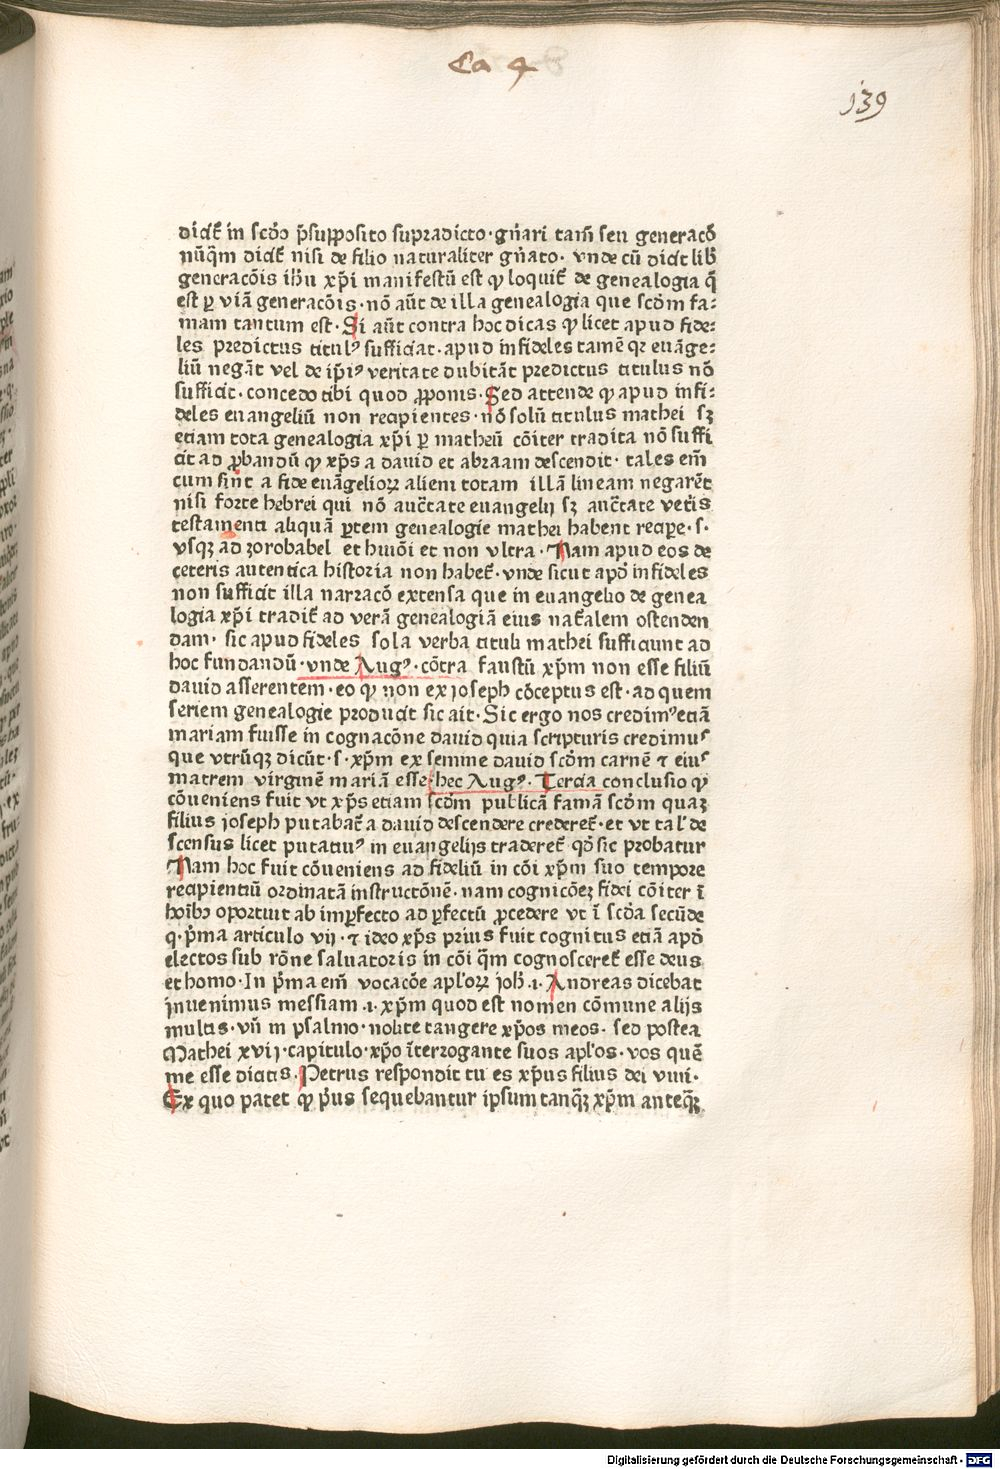 Ca 4
139
dicit᷑ in scd̄o p̄supposito supradicto · gn̄ari tam̄ seu generacō
nūq̄m dicit᷑ nisi de filio naturaliter gn̄ato · vnde cū dicit lib̄
generacōis ih̄u xp̄i manifestū est ꝙ loquit᷑ de genealogia q̄
est ꝑ viā generacōis · nō aūt de illa genealogia que scd̄m fa⸗
mam tantum est · Si aūt contra hoc dicas ꝙ licet apud fide⸗
les predictus titulꝰ sufficiat · apud infideles tamē qꝛ euāge⸗
liū negāt vel de ip̄iꝰ veritate dubitāt predictus titulus nō
sufficit · concedo tibi quod ꝓponis · Sed attende ꝙ apud infi⸗
deles euangeliū non recipientes · nō solū titulus mathei sꝫ
etiam tota genealogia xp̄i ꝑ matheū cōiter tradita nō suffi
cit ad ꝓbandū ꝙ xp̄s a dauid et abraam descendit · tales em̄
cum sint a fide euāgelioꝝ alieni totam illā lineam negarēt
nisi forte hebrei qui nō auc̄tate euangelij sꝫ auc̄tate vet̄is
testamenti aliquā ꝑtem genealogie mathei habent recipe · s ·
vsqꝫ ad zorobabel et huiōi et non vltra · Nam apud eos de
ceteris autentica historia non habet᷑ · vnde sicut apd̄ infideles
non sufficit illa narracō extensa que in euangelio de genea
logia xp̄i tradit᷑ ad verā genealogiā eius nat᷑alem ostenden
dam · sic apud fideles sola verba tituli mathei sufficiunt ad
hoc fundandū · vnde Augꝰ · cōtra faustū xp̄m non esse filiū
dauid asserentem · eo ꝙ non ex ioseph cōceptus est · ad quem
seriem genealogie producit sic ait · Sic ergo nos credimꝰ etiā
mariam fuisse in cognacōne dauid quia scripturis credimus
que vtrūqꝫ dicūt · s · xp̄m ex semine dauid scd̄m carnē ⁊ eius
matrem virginē mariā esse · hec Augꝰ · Tercia conclusio ꝙ
cōueniens fuit vt xp̄s etiam scd̄m publicā famā scd̄m quaꝫ
filius ioseph putabat᷑ a dauid descendere crederet᷑ · et vt tal̓ de
scensus licet putatiuꝰ in euangelijs traderet᷑ qd̄ sic probatur
Nam hoc fuit cōueniens ad fideliū in cōi xp̄m suo tempore
recipientiū ordinatā instructōnē · nam cognicōeꝫ fidei cōiter ī
hoīb̄ oportuit ab imꝑfecto ad ꝑfectū ꝓcedere vt ī scd̄a secūde
q · p̄ma articulo vij · ⁊ ideo xp̄s prius fuit cognitus etiā apd̄
electos sub rōne saluatoris in cōi q̄m cognosceret᷑ esse deus
et homo · In p̄ma em̄ vocacōe apl̓oꝝ ioh̄ .i. Andreas dicebat
inuenimus messiam .i. xp̄m quod est nomen cōmune alijs
multis · vn̄ in psalmo · nolite tangere xp̄os meos · sed postea
Mathei xvij · capitulo · xp̄o īterrogante suos apl̓os · vos quē
me esse dicitis · Petrus respondit tu es xp̄us filius dei viui ·
Ex quo patet ꝙ p̄us sequebantur ipsum tanq̄ꝫ xp̄m anteq̄ꝫ
Digitalisierung gefördert durch die Deutsche Forschungsgemeinschaft - DFG